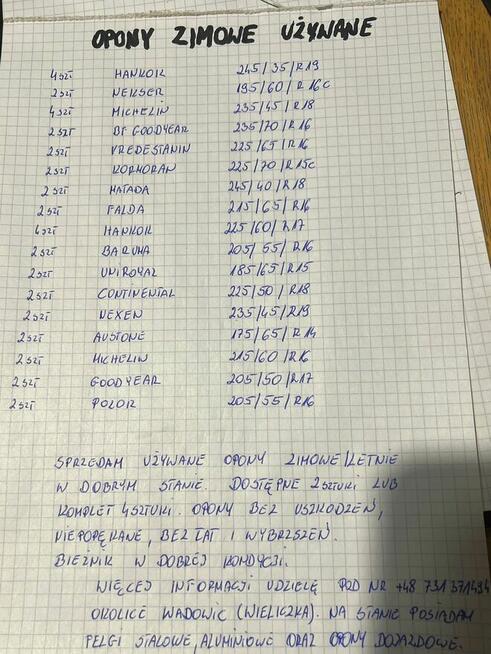 OPONY ZIMOWE UŻYWANE
4 SZT HANKOK 245/35/R19
2 SZT NEKSER 195/60/R16C
4 SZT MICHELIN 235/45/R18
2 SZT BF GOODYEAR 235/70/R16
2 SZT VREDESTANIN 225/65/R16
2 SZT KORMORAN 225/70/R15C
2 SZT MATADA 245/40/R18
2 SZT FALDA 215/65/R16
4 SZT HANKOK 225/60/R17
2 SZT BARUMA 205/55/R16
2 SZT UNIROYAL 185/65/R15
2 SZT CONTINENTAL 225/50/R18
2 SZT NEXEN 235/45/R19
2 SZT AUSTONE 175/65/R14
2 SZT MICHELIN 215/60/R16
2 SZT GOODYEAR 205/50/R17
2 SZT POZOR 205/55/R16
SPRZEDAM UŻYWANE OPONY ZIMOWE/LETNIE
W DOBRYM STANIE. DOSTĘPNE 2 SZTUKI LUB
KOMPLET 4 SZTUKI. OPONY BEZ USZKODZEŃ,
NIEPOPĘKANE, BEZ ŁAT I WYBRZSZEŃ.
BIEŻNIK W DOBREJ KONDYCJI.
WIĘCEJ INFORMACJI UDZIELĘ POD NR +48 731 371494
OKOLICE WADOWIC (WIELICZKA). NA STANIE POSIADAM
FELGI STALOWE, ALUMINIOWE ORAZ OPONY DOJAZDOWE.